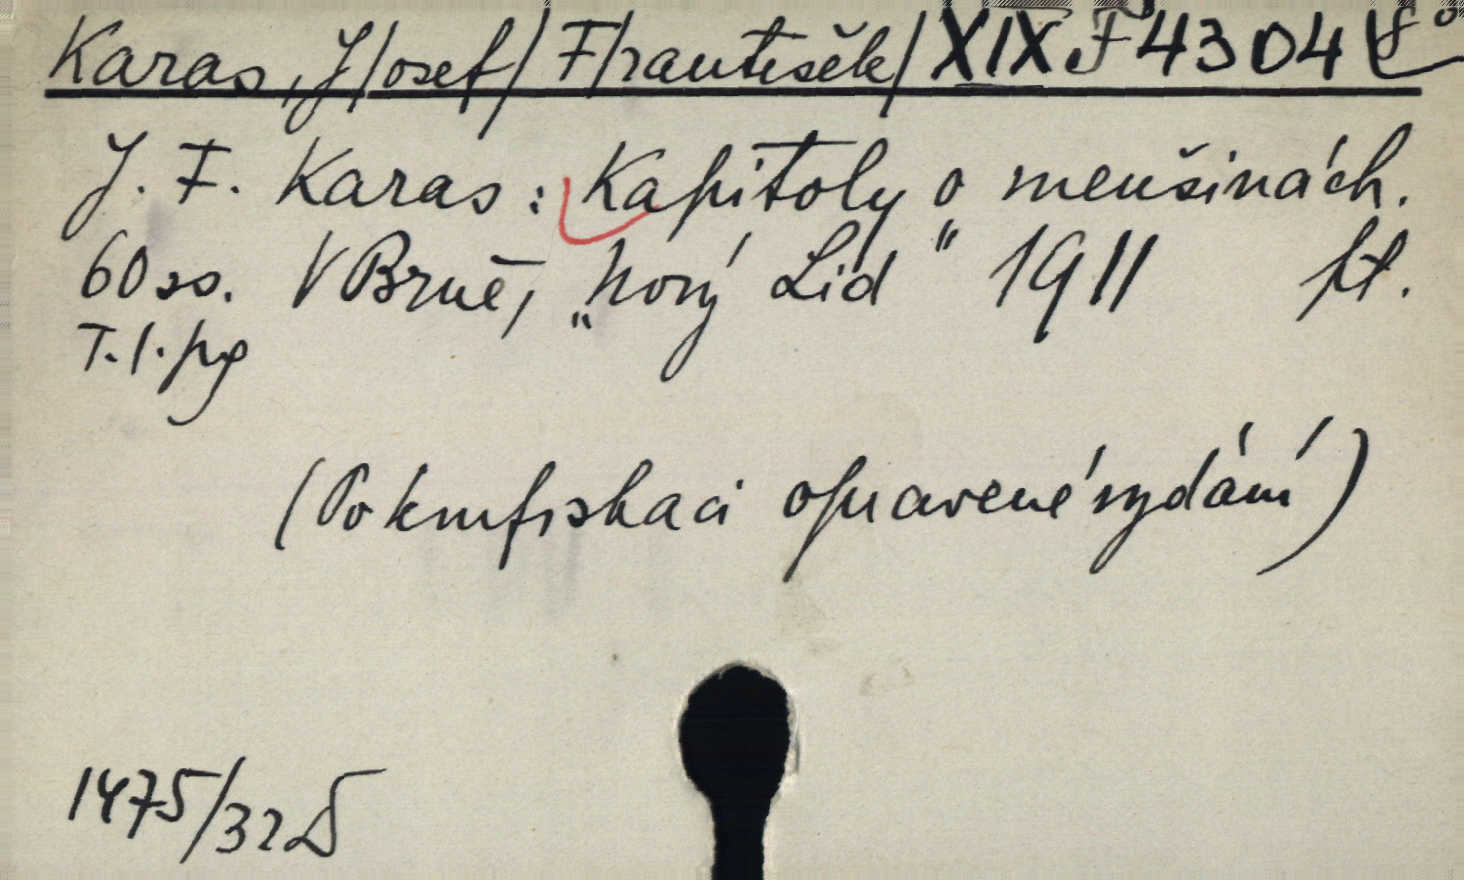 Karas, J/osef/ F/rantišek/ XIX F 4304 8°
J. F. Karas: Kapitoly o menšinách.
60 ss. V Brně, „Nový Lid“ 1911 pt.
T. l. pg
(Po konfiskaci opravené vydání)
1475/32 D